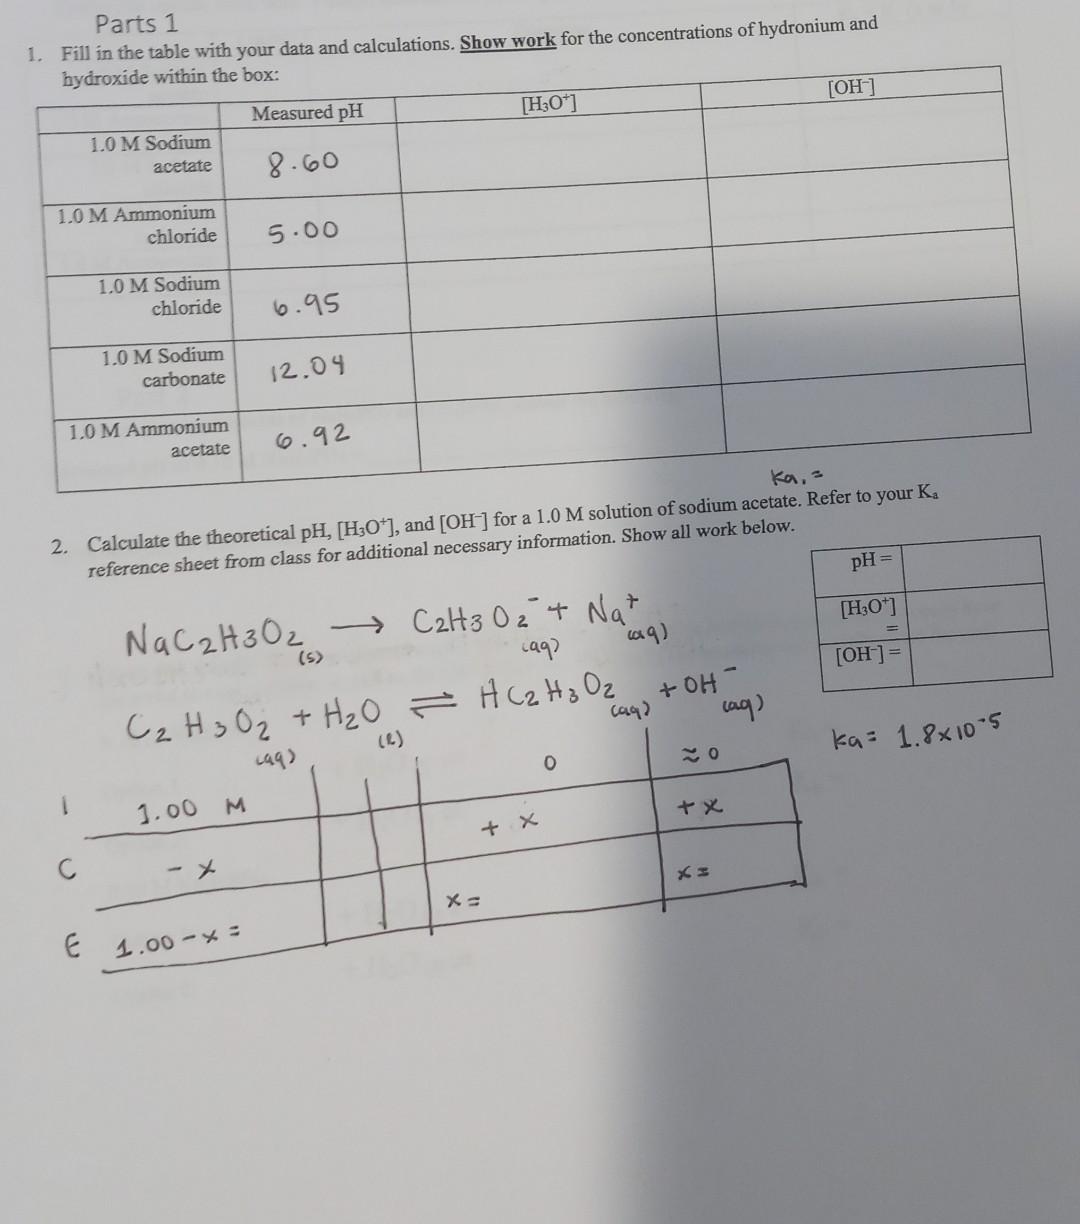 Parts 1
1. Fill in the table with your data and calculations. Show work for the concentrations of hydronium and
hydroxide within the box:
Measured pH [H₃O⁺] [OH⁻]
1.0 M Sodium
acetate 8.60
1.0 M Ammonium
chloride 5.00
1.0 M Sodium
chloride 6.95
1.0 M Sodium
carbonate 12.04
1.0 M Ammonium
acetate 6.92
Ka, =
2. Calculate the theoretical pH, [H₃O⁺], and [OH⁻] for a 1.0 M solution of sodium acetate. Refer to your Kₐ
reference sheet from class for additional necessary information. Show all work below.
pH =
[H₃O⁺]
=
[OH⁻] =
NaC₂H₃O₂ (s) → C₂H₃O₂⁻ (aq) + Na⁺ (aq)
C₂H₃O₂ (aq) + H₂O (l) ⇌ HC₂H₃O₂ (aq) + OH⁻ (aq)
Ka = 1.8x10⁻⁵
I 1.00 M 0 ≈0
C - x + x + x
E 1.00 - x = x = x =